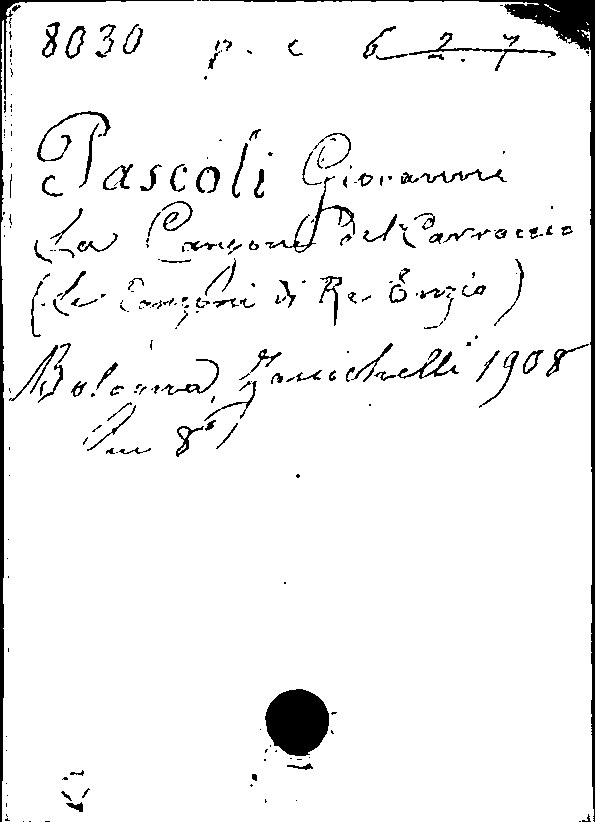 8030 p. c 6 2. 7
Pascoli Giovanni
La Canzone del Carroccio
(Le Canzoni di Re Enzio)
Bologna, Zanichelli 1908
In 8°